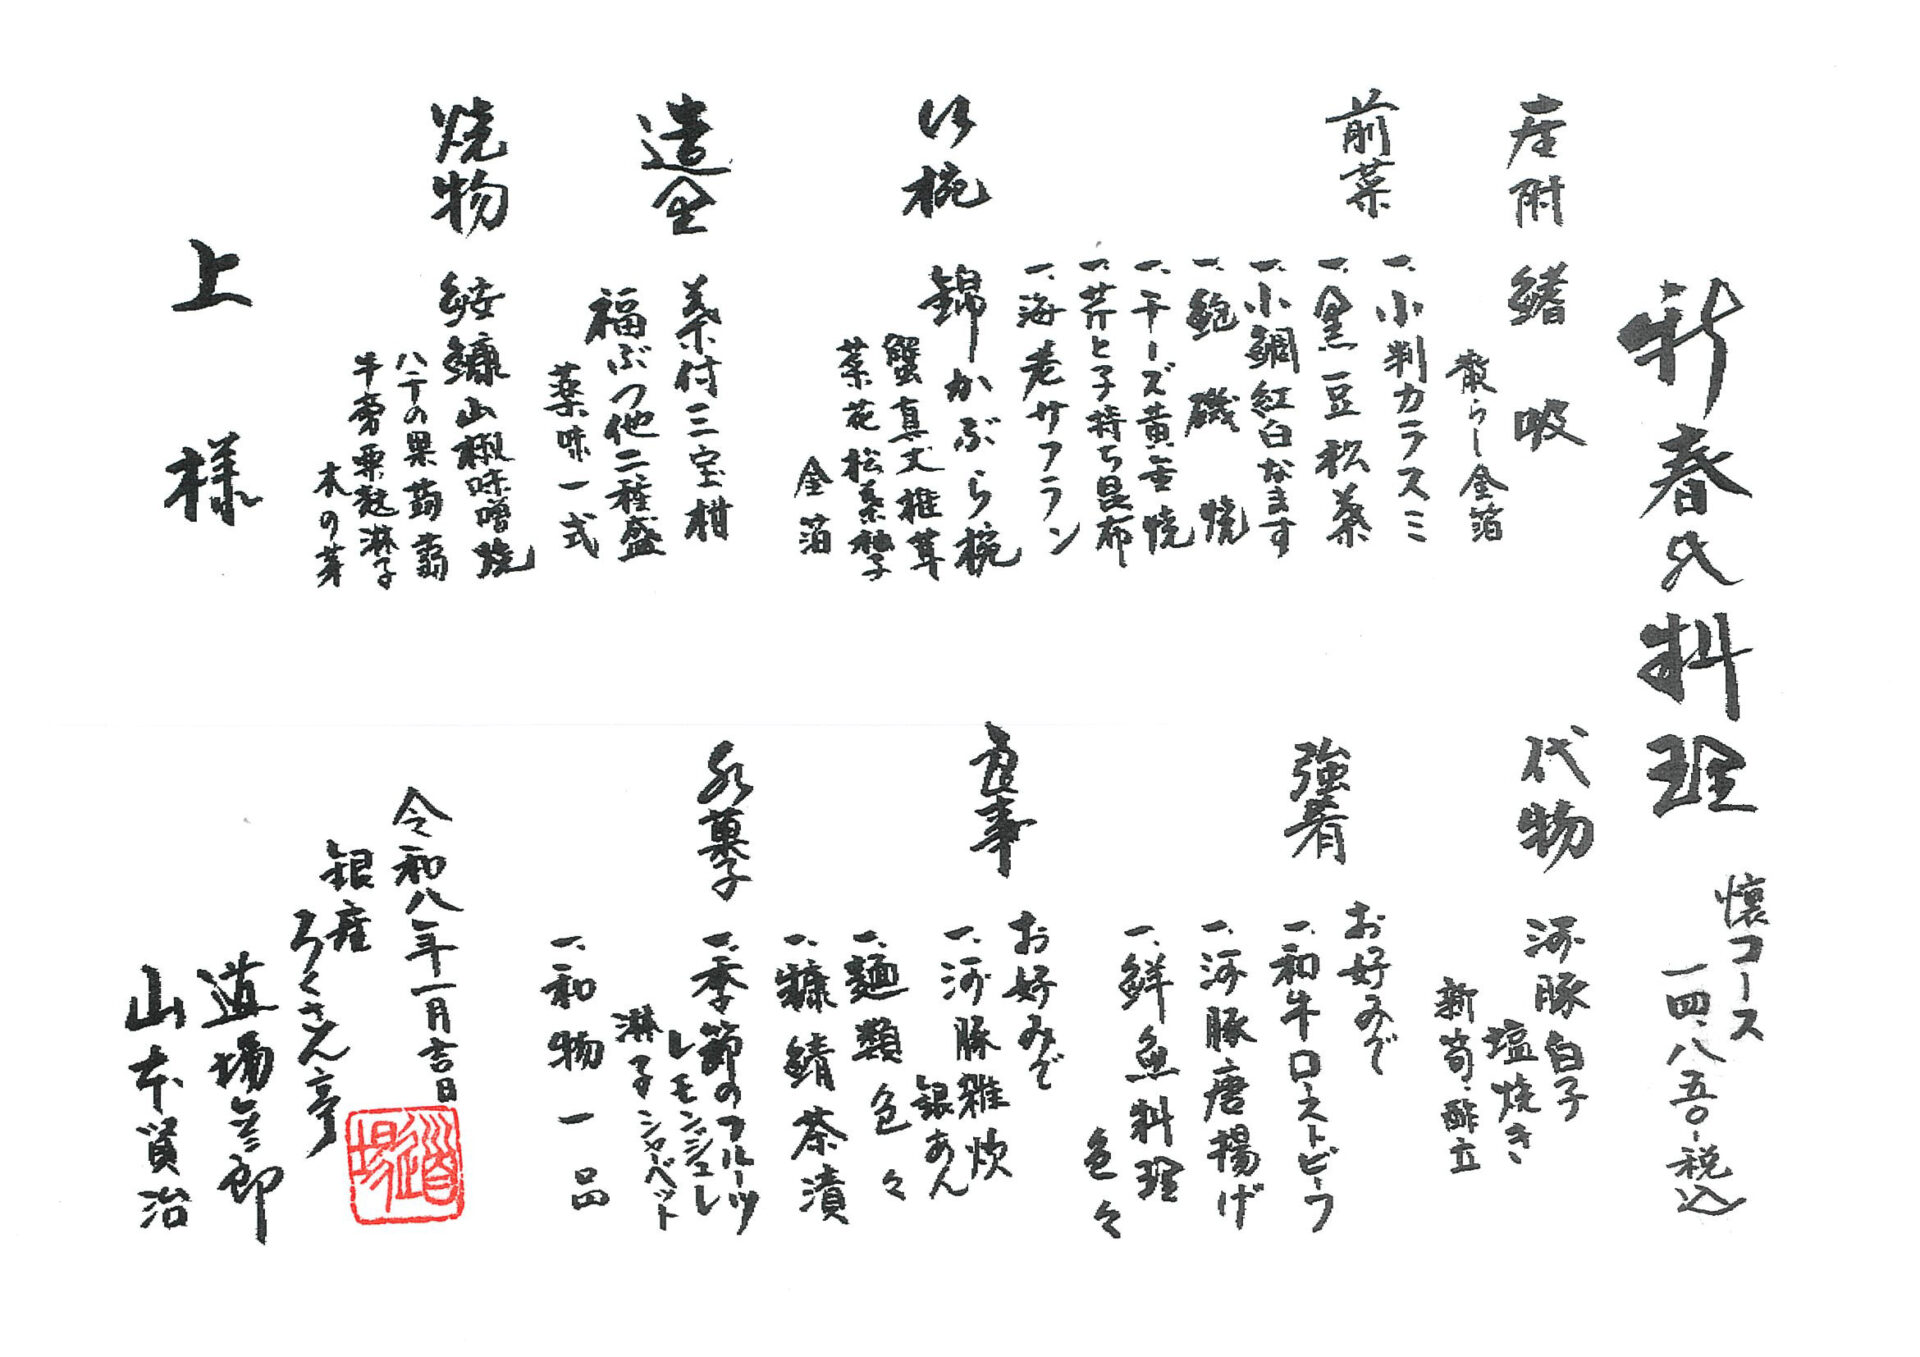 新春の料理
懐コース
一四、八五〇-税込
座附
鰭吸
散らし金箔
前菜
一、小判カラスミ
一、黒豆松葉
一、小鯛紅白なます
一、鮑磯焼
一、チーズ黄金焼
一、芹と子持ち昆布
一、海老サフラン
椀
錦かぶら椀
蟹真丈椎茸
菜花松葉柚子
金箔
造里
葉付三宝柑
福ぶつ他二種盛
薬味一式
焼物
鮟鱇山椒味噌焼
八千の果蒟蒻
牛蒡栗麩淋子
木の芽
上様
代物
河豚白子
塩焼き
新筍・酢立
強肴
お好みで
一、和牛ローストビーフ
一、河豚唐揚げ
一、鮮魚料理
色々
食事
お好みで
一、河豚雑炊
銀あん
一、麺類色々
一、糠鯖茶漬
水菓子
一、季節のフルーツ
レモンジュレ
淋子シャーベット
一、和物一品
令和八年一月吉日
銀座
ろくさん亭
道場六三郎
山本賢治
道場